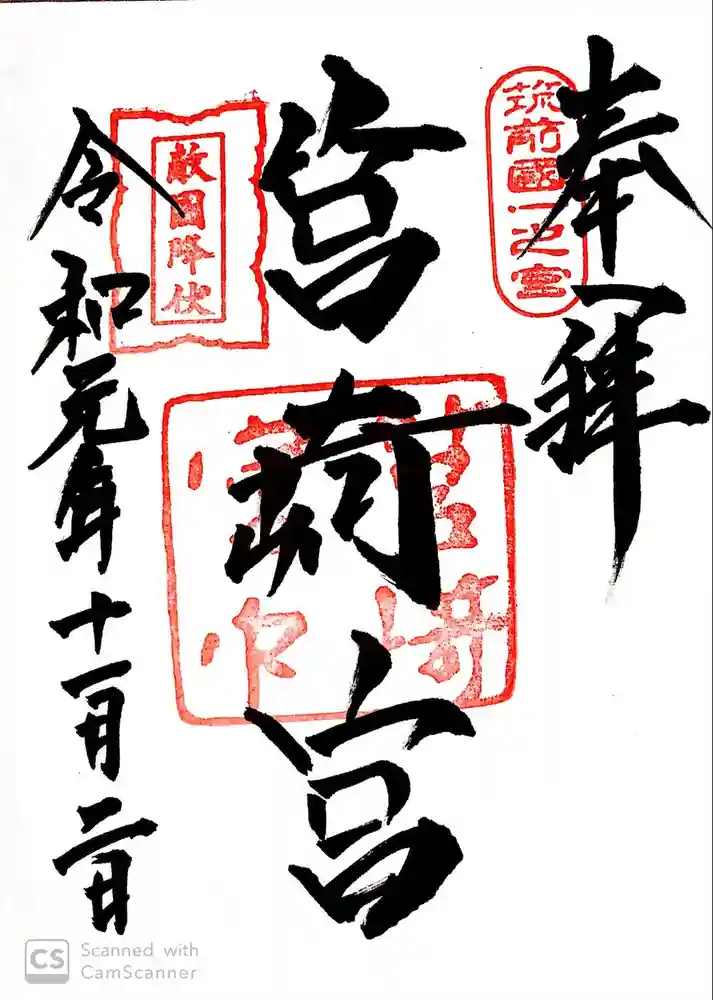 奉拝
筑前國一之宮
筥崎宮
筥崎宮印
敵國降伏
令和元年十一月二日
CS Scanned with
CamScanner